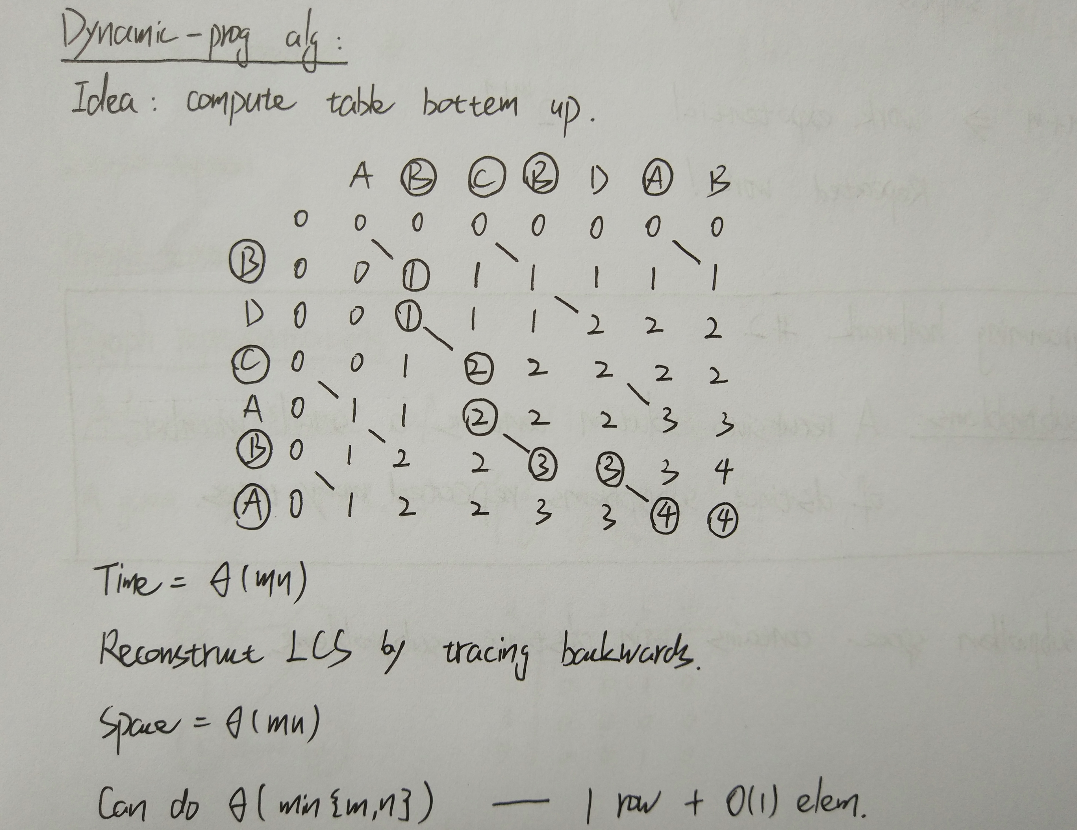 Dynamic-prog alg:
Idea: compute table bottem up.
A B C B D A B
0 0 0 0 0 0 0 0
B 0 0 1 1 1 1 1 1
D 0 0 1 1 1 2 2 2
C 0 0 1 2 2 2 2 2
A 0 1 1 2 2 2 3 3
B 0 1 2 2 3 3 3 4
A 0 1 2 2 3 3 4 4
Time = θ(mn)
Reconstruct LCS by tracing backwards.
Space = θ(mn)
Can do θ(min{m,n}) — 1 row + O(1) elem.